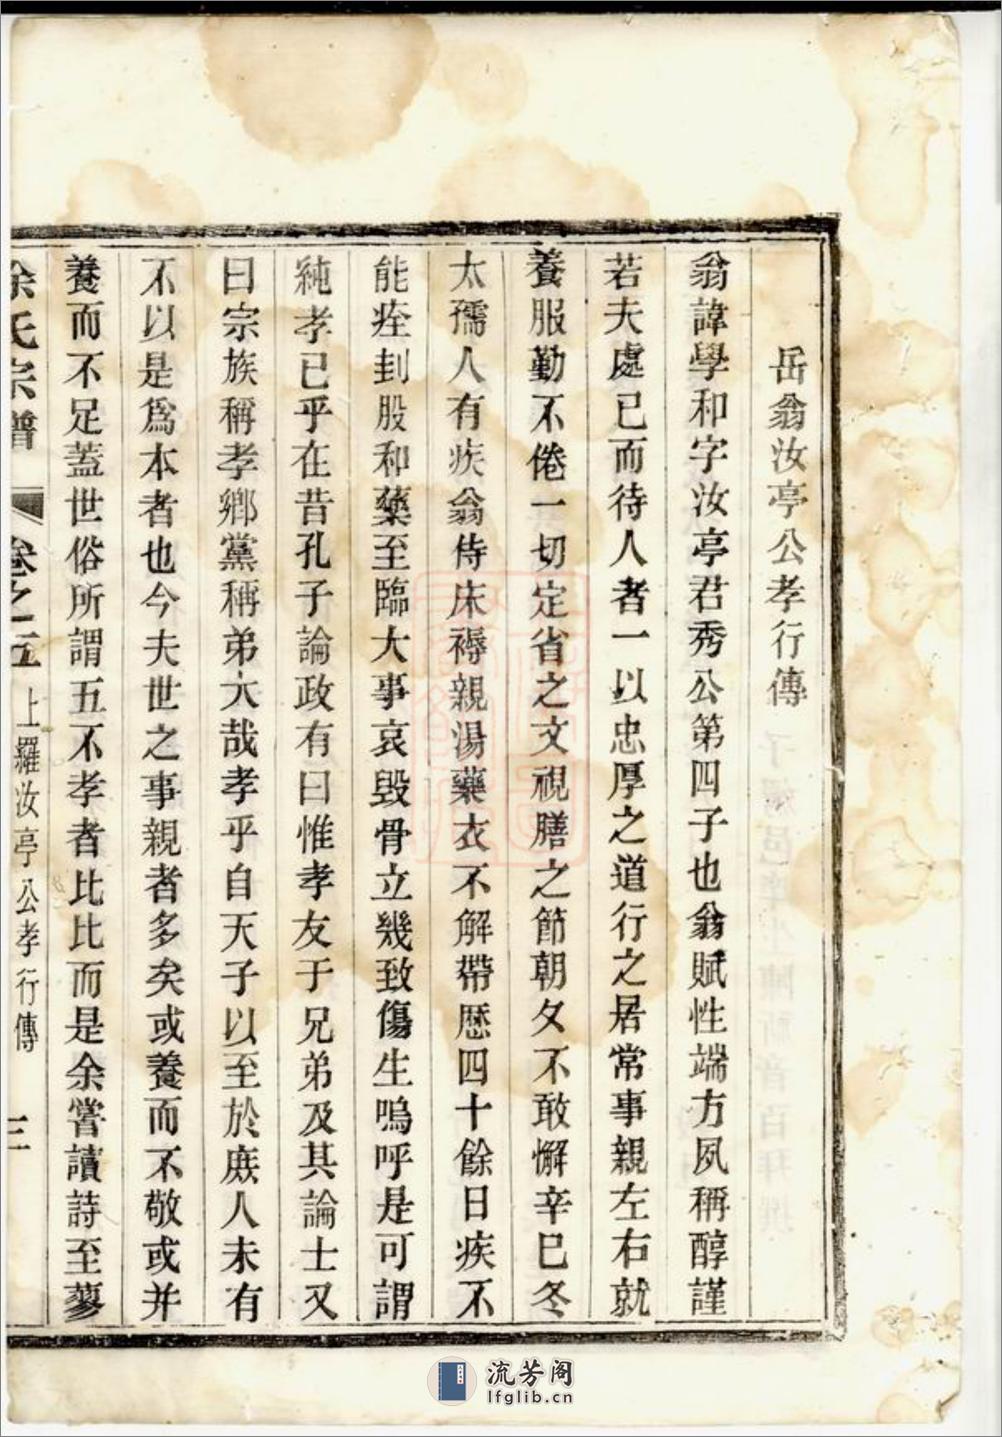 岳翁汝亭公孝行傳
翁諱學和字汝亭君秀公第四子也翁賦性端方夙稱醇謹
若夫處已而待人者一以忠厚之道行之居常事親左右就
養服勤不倦一切定省之文視膳之節朝夕不敢懈辛巳冬
太孺人有疾翁侍床褥親湯藥衣不解帶歷四十餘日疾不
能痊刲股和藥至臨大事哀毀骨立幾致傷生嗚呼是可謂
純孝已乎在昔孔子論政有曰惟孝友于兄弟及其論士又
曰宗族稱孝鄉黨稱弟大哉孝乎自天子以至於庶人未有
不以是爲本者也今夫世之事親者多矣或養而不敬或并
養而不足蓋世俗所謂五不孝者比比而是余嘗讀詩至蓼
余氏宗譜 卷之五 上羅汝亭公孝行傳 三
流芳阁
lfglib.cn